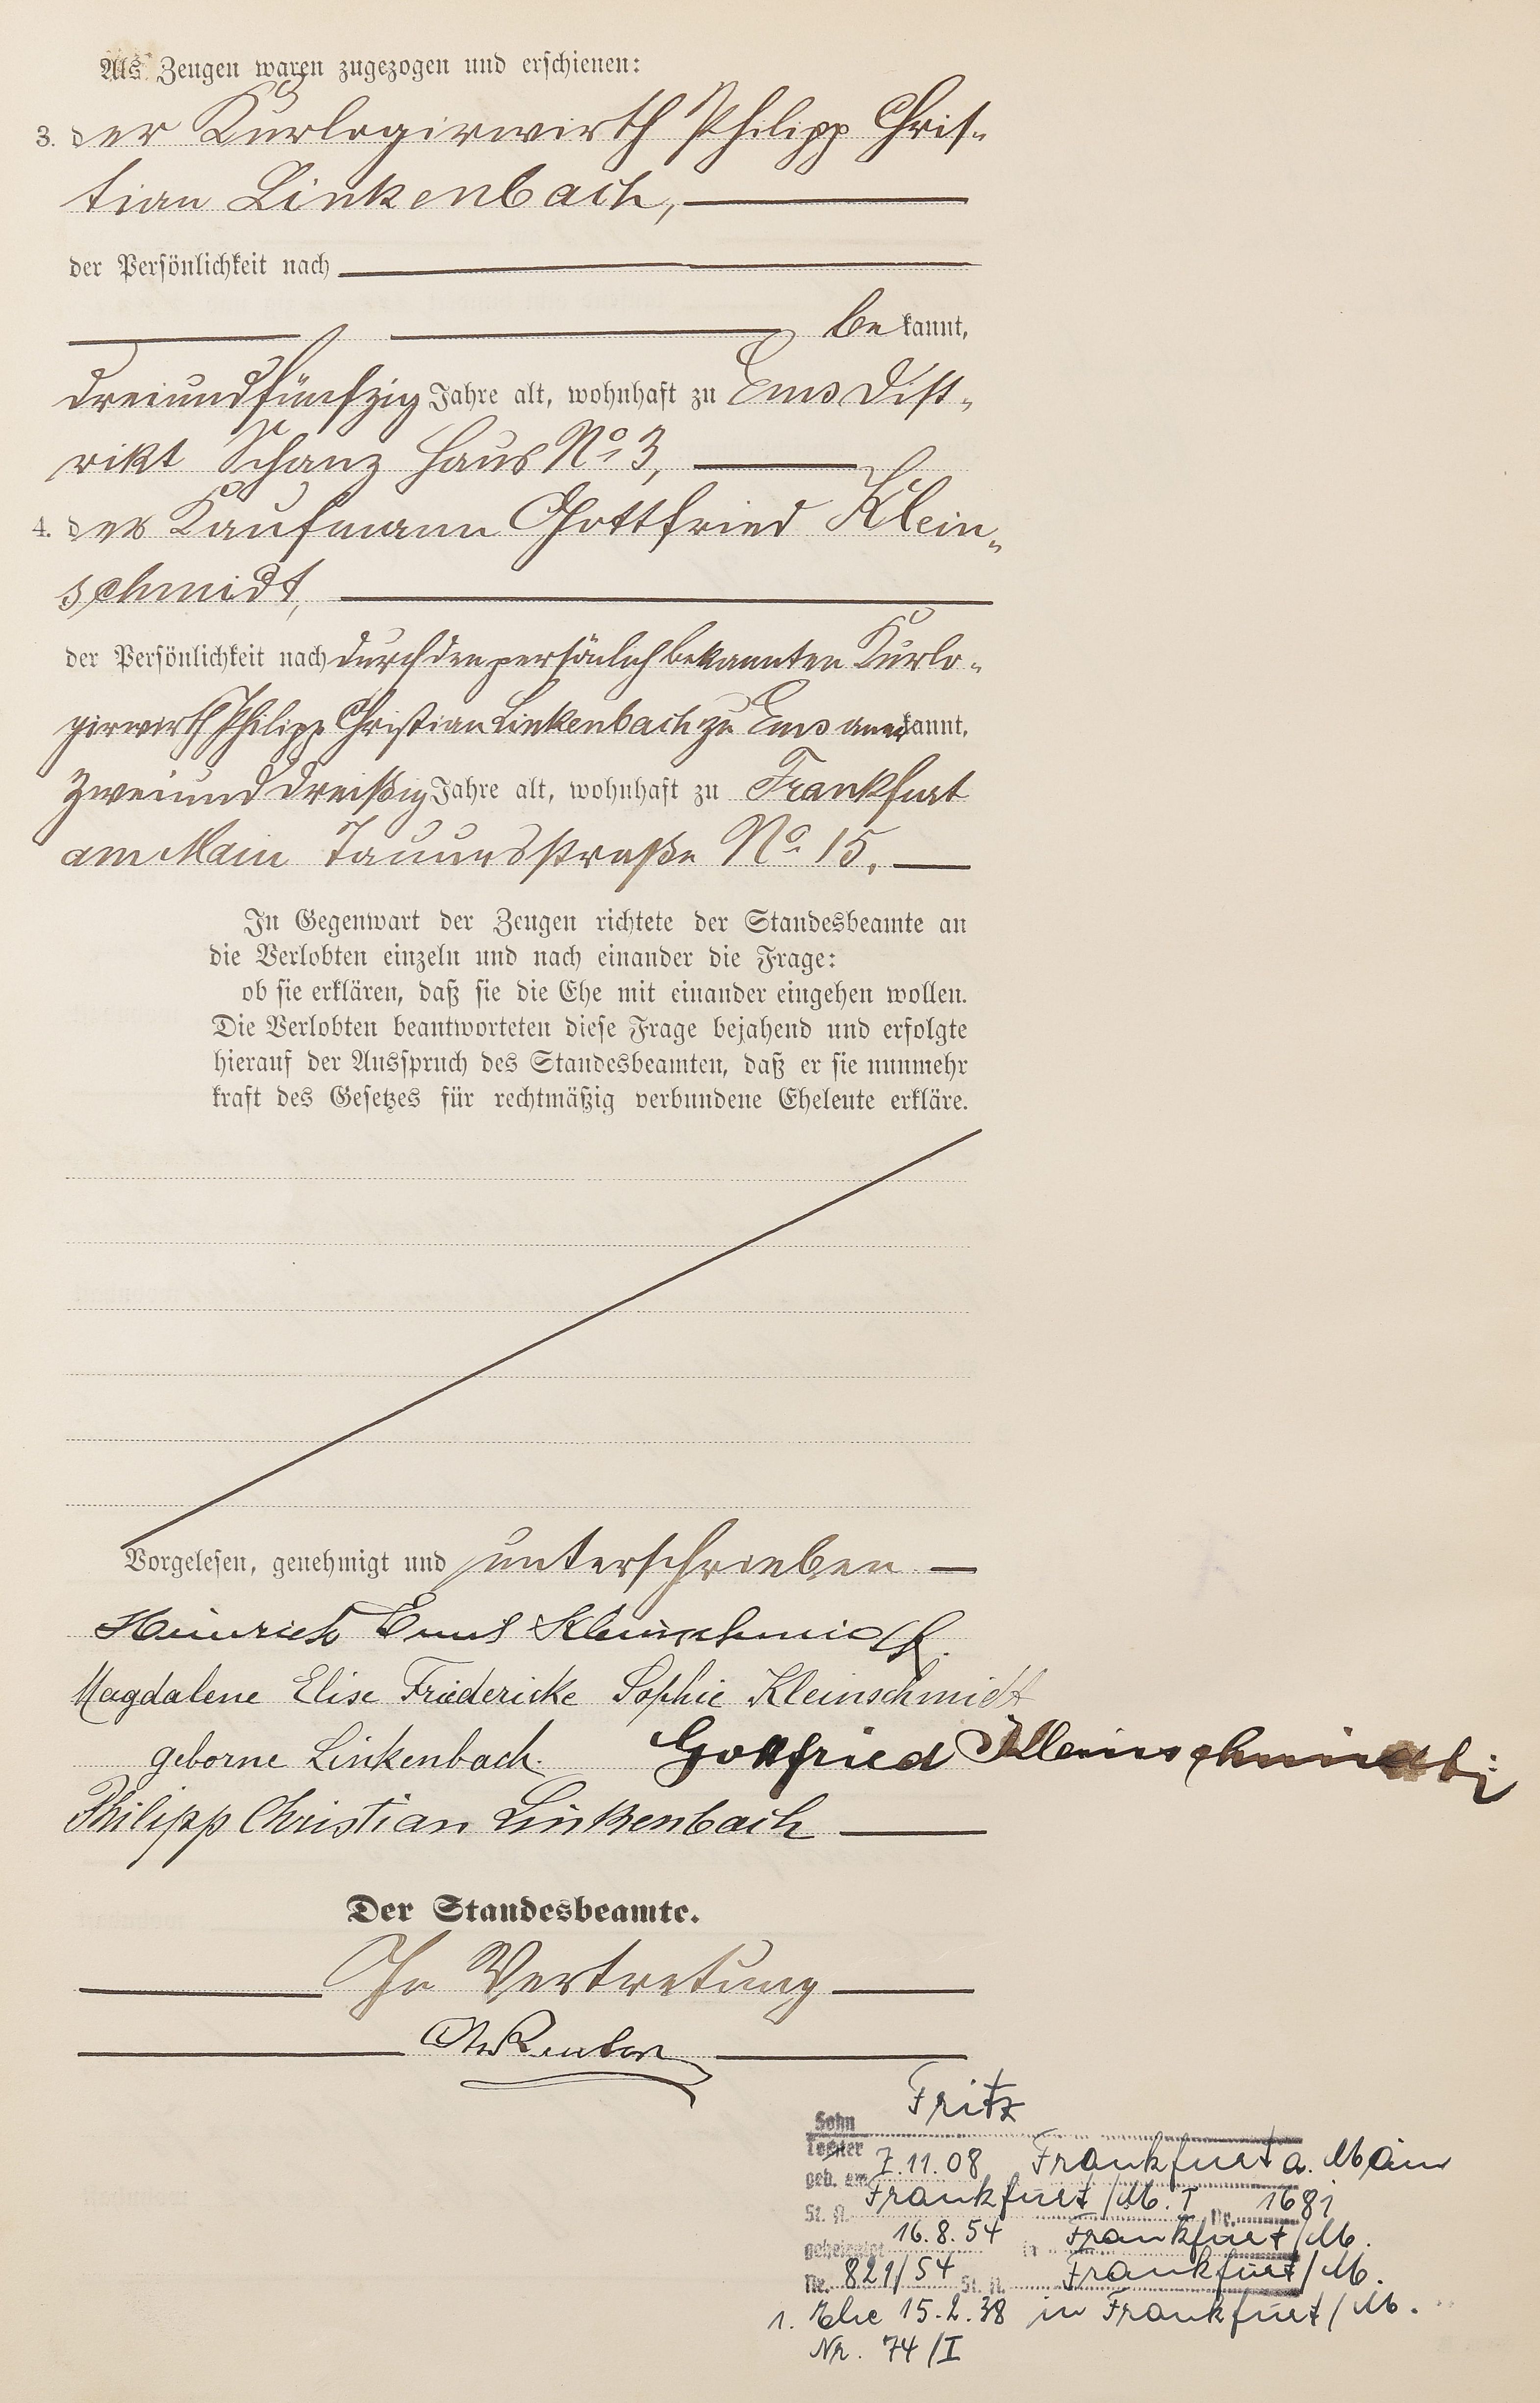 Als Zeugen waren zugezogen und erschienen:
3. der Kurlogirwirth Philipp Chris-
tian Linkenbach,
der Persönlichkeit nach
bekannt,
dreiundfünfzig Jahre alt, wohnhaft zu Ems Dist-
rikt Schanz Haus No 3,
4. der Kaufmann Gottfried Klein-
schmidt,
der Persönlichkeit nach durch den persönlich bekannten Kurlo-
girwirth Philipp Christian Linkenbach zu Ems anerkannt,
zweiunddreißig Jahre alt, wohnhaft zu Frankfurt
am Main Taunusstraße No 15.
In Gegenwart der Zeugen richtete der Standesbeamte an
die Verlobten einzeln und nach einander die Frage:
ob sie erklären, daß sie die Ehe mit einander eingehen wollen.
Die Verlobten beantworteten diese Frage bejahend und erfolgte
hierauf der Ausspruch des Standesbeamten, daß er sie nunmehr
kraft des Gesetzes für rechtmäßig verbundene Eheleute erkläre.
Vorgelesen, genehmigt und unterschrieben
Heinrich Ernst Kleinschmidt.
Magdalene Elise Friedericke Sophie Kleinschmidt
geborne Linkenbach. Gottfried Kleinschmidt
Philipp Christian Linkenbach
Der Standesbeamte.
In Vertretung
Fritz
Sohn
Tochter
geb. am 7.11.08 Frankfurt a. Main
St. A. Frankfurt/M. I Nr. 1681
geheiratet 16.8.54 in Frankfurt/M.
Nr. 821/54 St. A. Frankfurt/M.
1. Ehe 15.2.38 in Frankfurt/M.
Nr. 74/I